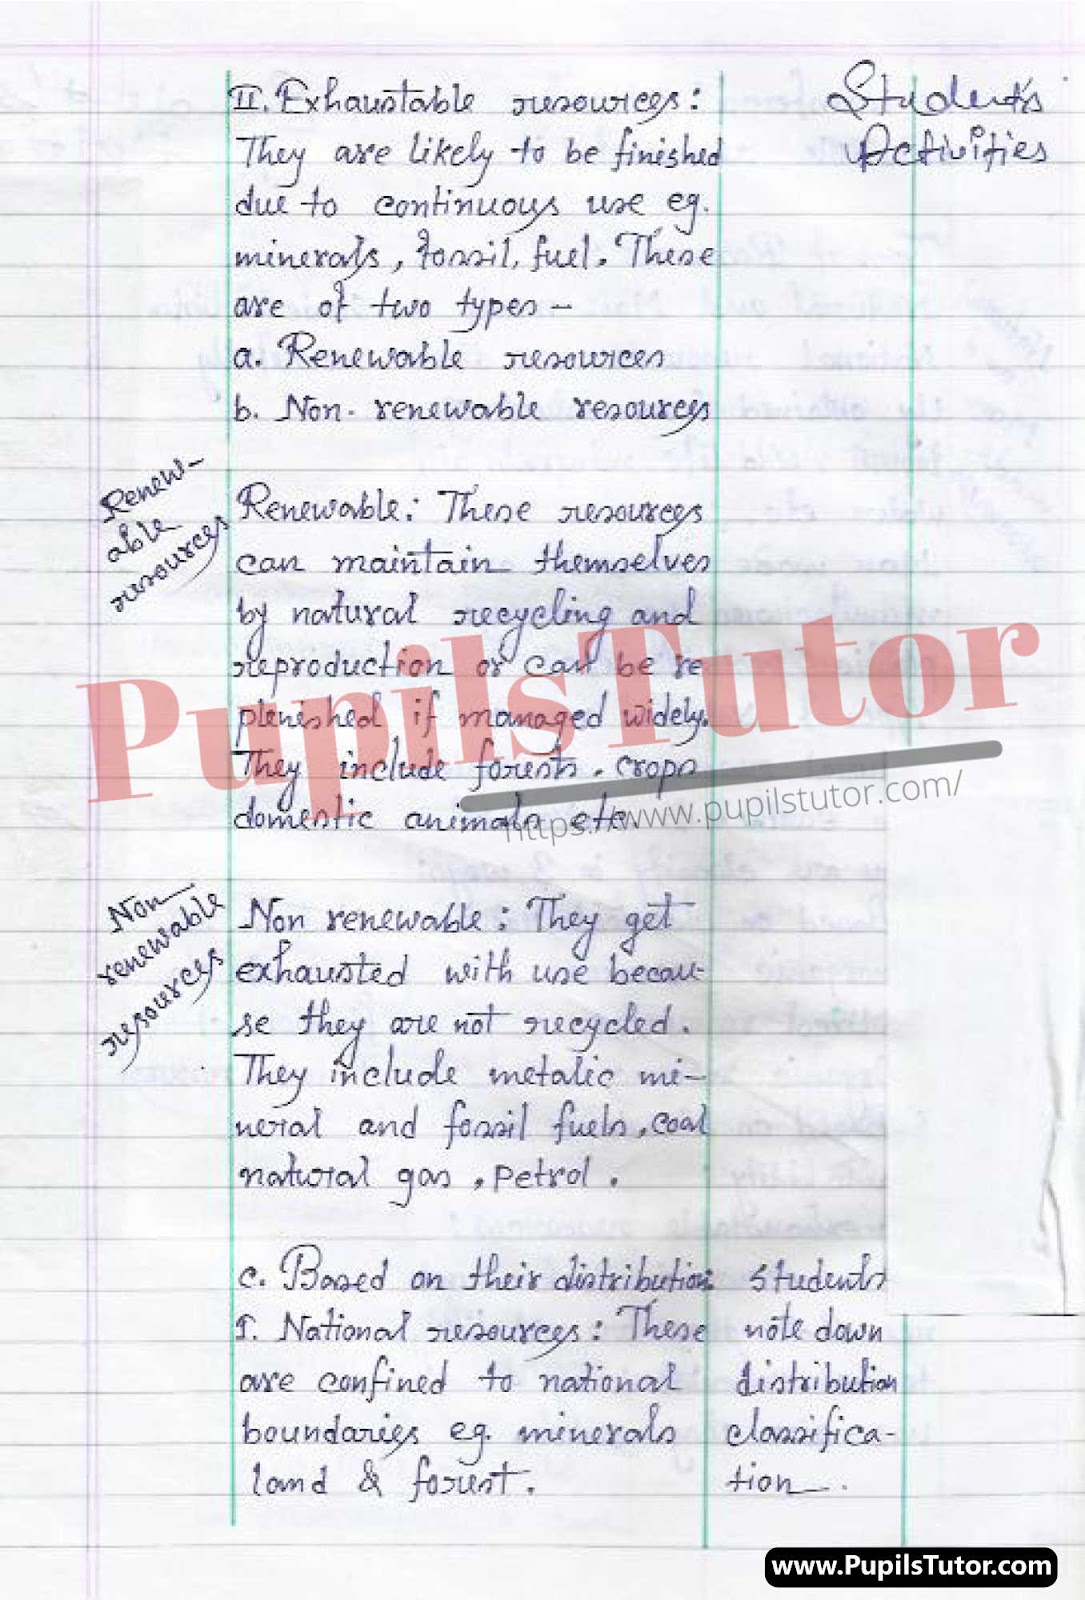 II. Exhaustable resources:
Student's
They are likely to be finished
Activities
due to continuous use eg.
minerals, fossil, fuel. These
are of two types -
a. Renewable resources
b. Non-renewable resources
Renew-
able
resources
Renewable: These resources
can maintain themselves
by natural recycling and
reproduction or can be re
plenished if managed widely.
They include forests, crops
domestic animals etc.
Pupils Tutor
https://www.pupilstutor.com/
Non
renewable
resources
Non renewable: They get
exhausted with use becau-
se they are not recycled.
They include metalic mi-
neral and fossil fuels, coal
natural gas, petrol.
c. Based on their distribution
1. National resources: These
are confined to national
boundaries eg. minerals
land & forest.
students
note down
distribution
classifica-
tion.
www.PupilsTutor.com